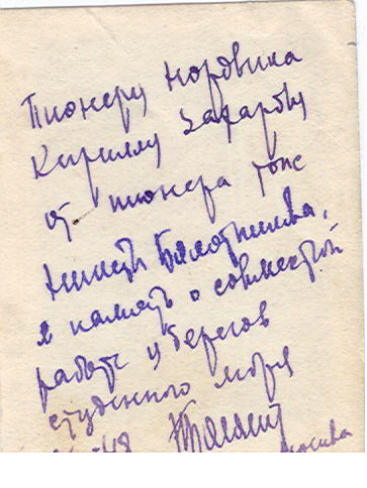 Пионеру Нордвика
Кириллу Захарову
от пионера
Никиты
в память о совместной
работе у берегов
студеного моря
48
Москва